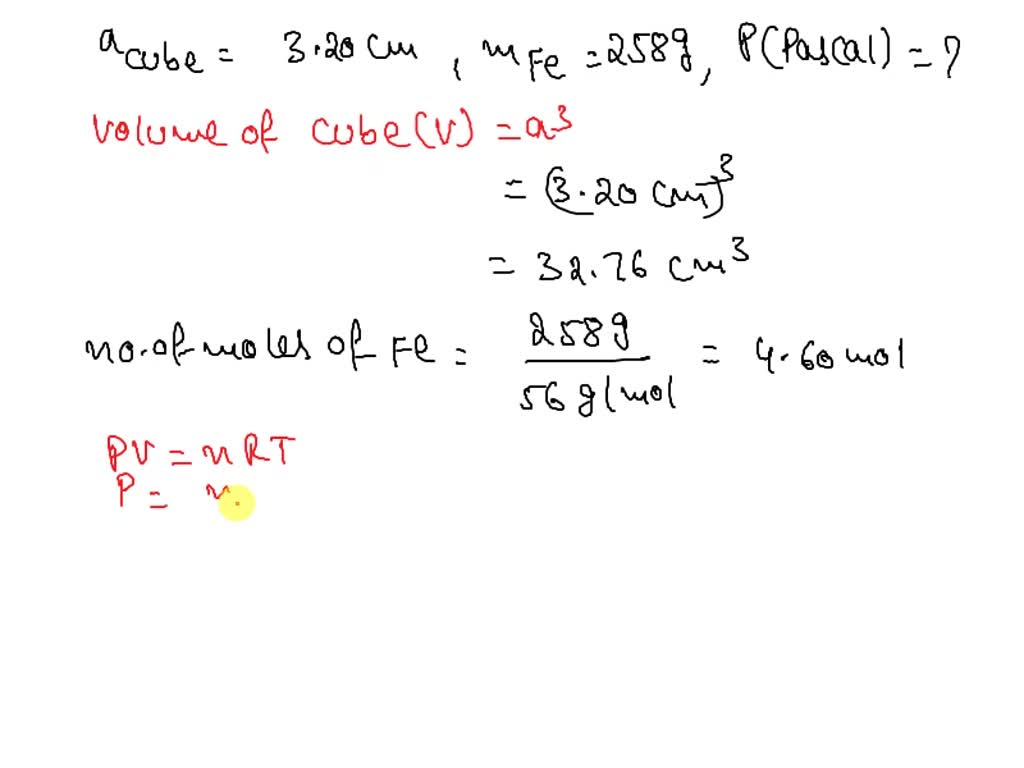 a cube = 3.20 cm, m Fe = 258g, P(Pascal) = ?
volume of cube(V) = a³
= (3.20 cm)³
= 32.76 cm³
no.of moles of Fe = 258g / 56 g/mol = 4.60 mol
PV = nRT
P = n